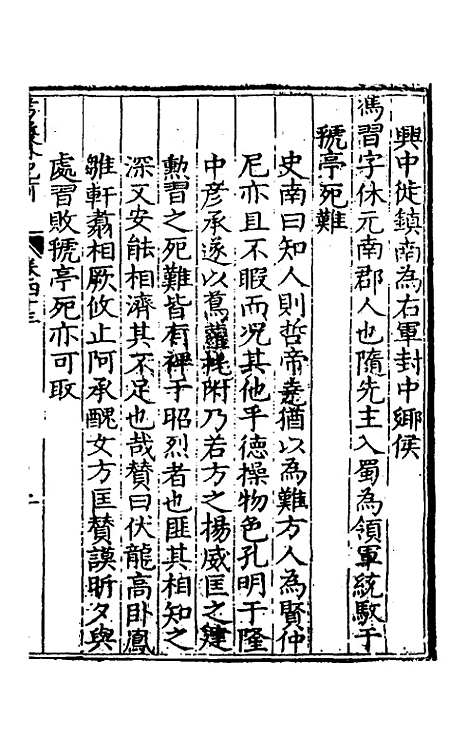 興中徙鎮南為右軍封中鄉侯
馮習字休元南郡人也隋先主入蜀為領軍統馭于
猇亭死難
史南曰知人則哲帝堯猶以為難方人為賢仲
尼亦且不暇而况其他乎德操物色孔明于隆
中彦承遂以蔦蘿托附乃若方之楊威匡之建
勲習之死難皆有裨于昭烈者也匪其相知之
深又安能相濟其不足也哉贊曰伏龍高卧鳳
雛軒翥相厥攸止阿承醜女方匡贊謨昕夕與
處習敗猇亭死亦可取
卷四十三